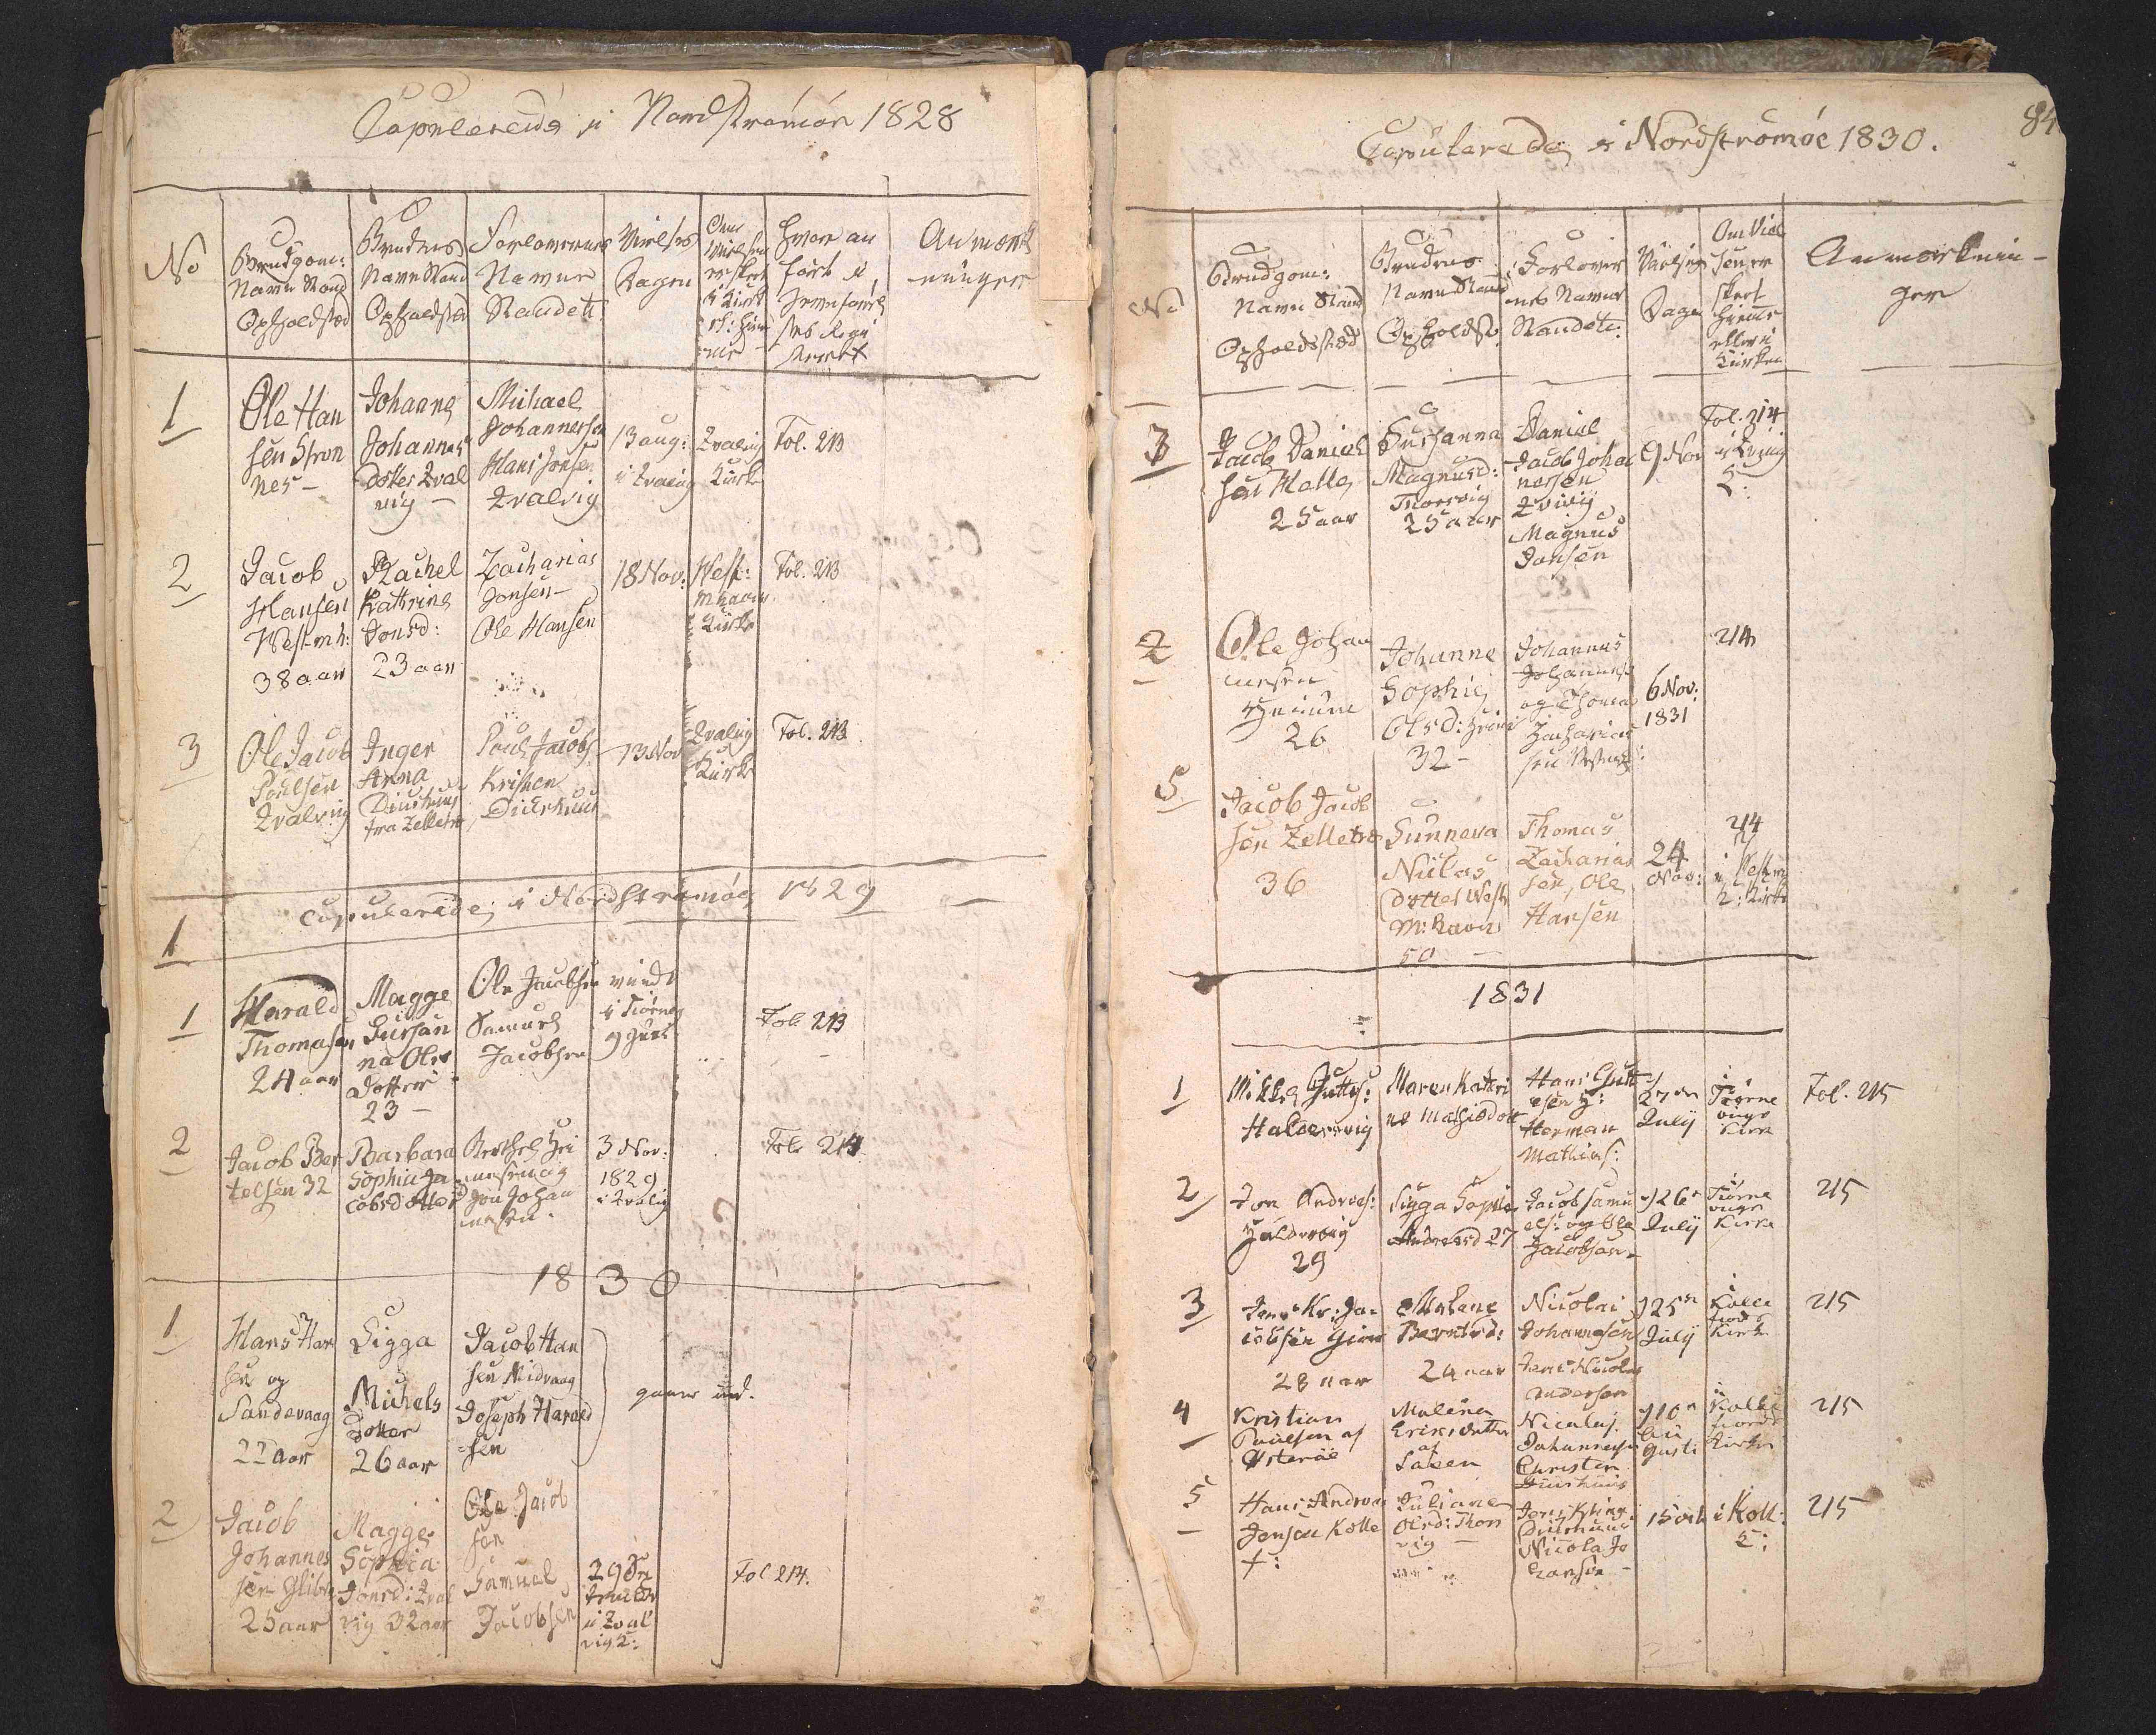 Copulerede i Nordstrømøe 1828
No
Brudgom:
Navn Stand
Opholdsted
Brudens
Navn Stand
Opholdsted
Forlovernes
Navne
Standett.
Vielses
Dagen
Om
Vielsen
er skeet
i Kirk
el: Hiem
me
Hvor an
ført i
Jevnførel
ses Regi
steret
Anmærk
ninger
1
Ole Han
sen Strøm
nes -
Johanne
Johannes
Dotter Qval
vig -
Michael
Johannessen
Hans Jensen
Qvalvig
13 aug:
i Qvalvig
Qvalvig
Kirke
Fol. 213
2
Jacob
Hansen
Westmh:
38 aar
Rachel
Kathrine
Jonsd:
23 aar
Zacharias
Jonsen -
Ole Hansen
18 Nov:
West:
mhavn
Kirke
Fol. 213
3
Ole Jacob
Poulsen
Qvalvig
Inger
Anna
Diurhuus
fra Zelletræ
Poul Jacobs.
Kristen
Diurhuus
13 Nov
Qvalvig
Kirke
Fol. 213
Copulerede i Nordstrømøe 1829
1
1
Harald
Thomasen
24 aar
Magge
Susan
na Ols
dotter
23 -
Ole Jacobsen
Samuel
Jacobsen
viede
i Tiørnev
9 Juni
Fol. 213
2
Jacob Ber
telsen 32
Barbara
Sophia Ja
cobsdotter
Berthel
Jon Johan
nesen.
3 Nov:
1829
i Qvalvig
Fol. 214
1830
1
Hans Han
sen og
Sandevaag
22 aar
Sigga
Michels
dotter
26 aar
Jacob Han
sen Midvaag
Joseph Harald
sen
2
Jacob
Johannes
sen Glibre
25 aar
Magge
Sophia
Jonsd: Qval
vig 32 aar
Ole Jacob
sen
Samuel
Jacobsen
29 Sep
tember
i Qval
vig K:
Fol 214.
84
Copulerede i Nordstrømøe 1830.
No
Brudgom:
Navn Stand
Opholdssted
Brudens
Navn Stand
Opholdst.
Forlover
nes Navne
Standett:
Vielses
Dage
Om Viel
sen er
skeet
hieme
eller i
Kirken
Anmærknin-
ger
3
Jacob Daniel
sen Welle
25 aar
Susanna
Magnusd:
Thorsvig
25 aar
Daniel
Jacob Johan
nesen
Qvivig
Magnus
Jansen
9 Nov
Fol. 214
i Qvivig
K:
4
Ole Johan
nesen
26
Johanne
Sophie
Olsd:
32 -
Johannes
Johannese
og Thomas
Zacharias
sen
6 Nov:
1831
214
5
Jacob Jacob
sen Zelletræ
36
Sunneva
Niclas
dotter West
m:havn
50 -
Thomas
Zacharias
sen, Ole
Hansen
24
Nov:
214
i Westm
h: Kirke
1831
1
Mikkel Gutts:
Haldersvig
Maren Kathri
ne Mathiedott
Hans Gutt
esen H:
Herman
Mathias:
27de
July
i
Tiørne
vigs
Kirk
Fol. 215
2
Jon Andreas:
Haldersvig
29
Sigga Sophia
Andreasd 27
Jacob Samu
els: og Ole
Jacobsen -
26de
July
i
Tiørne
vigs
Kirke
215
3
Jens Kr: Ja
cobsen Giov
28 aar
Malene
Berntsd:
24 aar
Nicolai
Johannesen
Jens Nicolai
Andersen
25de
July
i
Kolle
fiords
Kirke
215
4
Kristian
Poulsen af
Østerøe
Malena
Eriksdatter
af
Saxen
Nicolai
Johannesen
Christen
Diurhuus
10de
Au
gusti
i
Kolle
fiords
Kirke
215
5
Hans Andreas
Jensen Kolle
f:
Juliane
Olsd: Thors
vig -
Jens Kristi
Diurhuus
Nicola Jo
hansen -
15 oct
i Koll:
K:
215